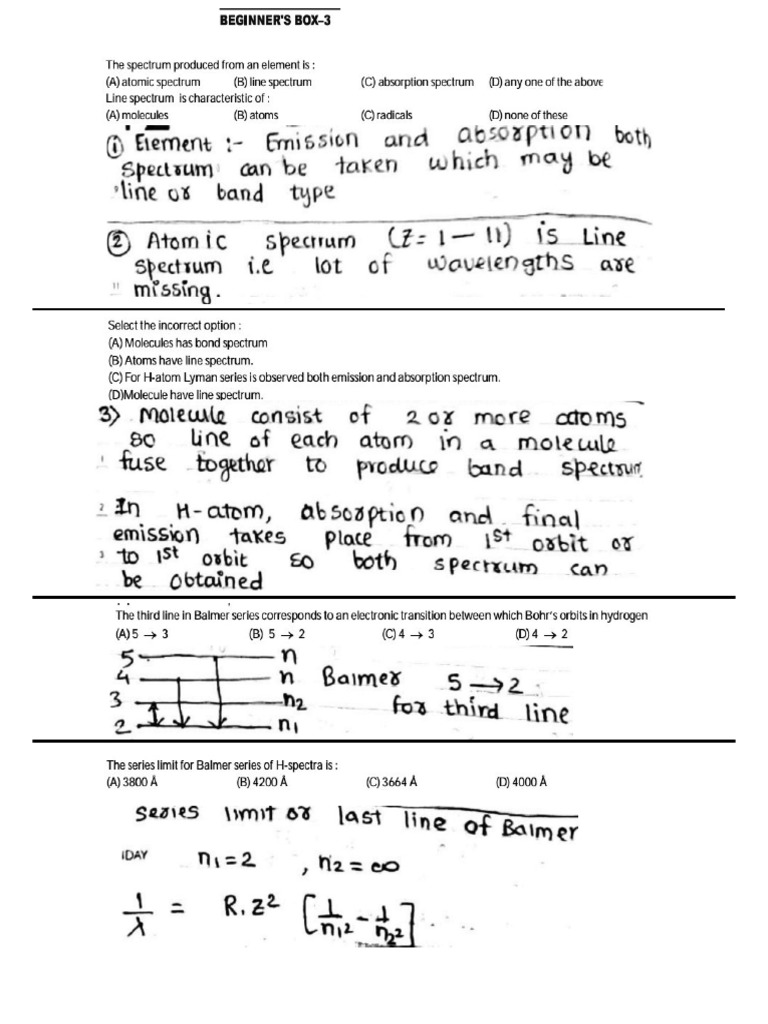 BEGINNER'S BOX–3
The spectrum produced from an element is :
(A) atomic spectrum (B) line spectrum (C) absorption spectrum (D) any one of the above
Line spectrum is characteristic of :
(A) molecules (B) atoms (C) radicals (D) none of these
① Element :- Emission and absorption both
spectrum can be taken which may be
line or band type
② Atomic spectrum (Z = 1 – 11) is Line
spectrum i.e lot of wavelengths are
missing.
Select the incorrect option :
(A) Molecules has bond spectrum
(B) Atoms have line spectrum.
(C) For H-atom Lyman series is observed both emission and absorption spectrum.
(D)Molecule have line spectrum.
3) Molecule consist of 2 or more atoms
so line of each atom in a molecule
1 fuse together to produce band spectrum
2 In H-atom, absorption and final
emission takes place from 1st orbit or
3 to 1st orbit so both spectrum can
be obtained
The third line in Balmer series corresponds to an electronic transition between which Bohr's orbits in hydrogen
(A) 5 → 3 (B) 5 → 2 (C) 4 → 3 (D) 4 → 2
5 n
4 n Balmer 5 → 2
3 n2 for third line
2 n1
The series limit for Balmer series of H-spectra is :
(A) 3800 Å (B) 4200 Å (C) 3664 Å (D) 4000 Å
series limit or last line of Balmer
IDAY n1 = 2 , n2 = ∞
1/λ = R.Z² [1/n1² - 1/n2²]